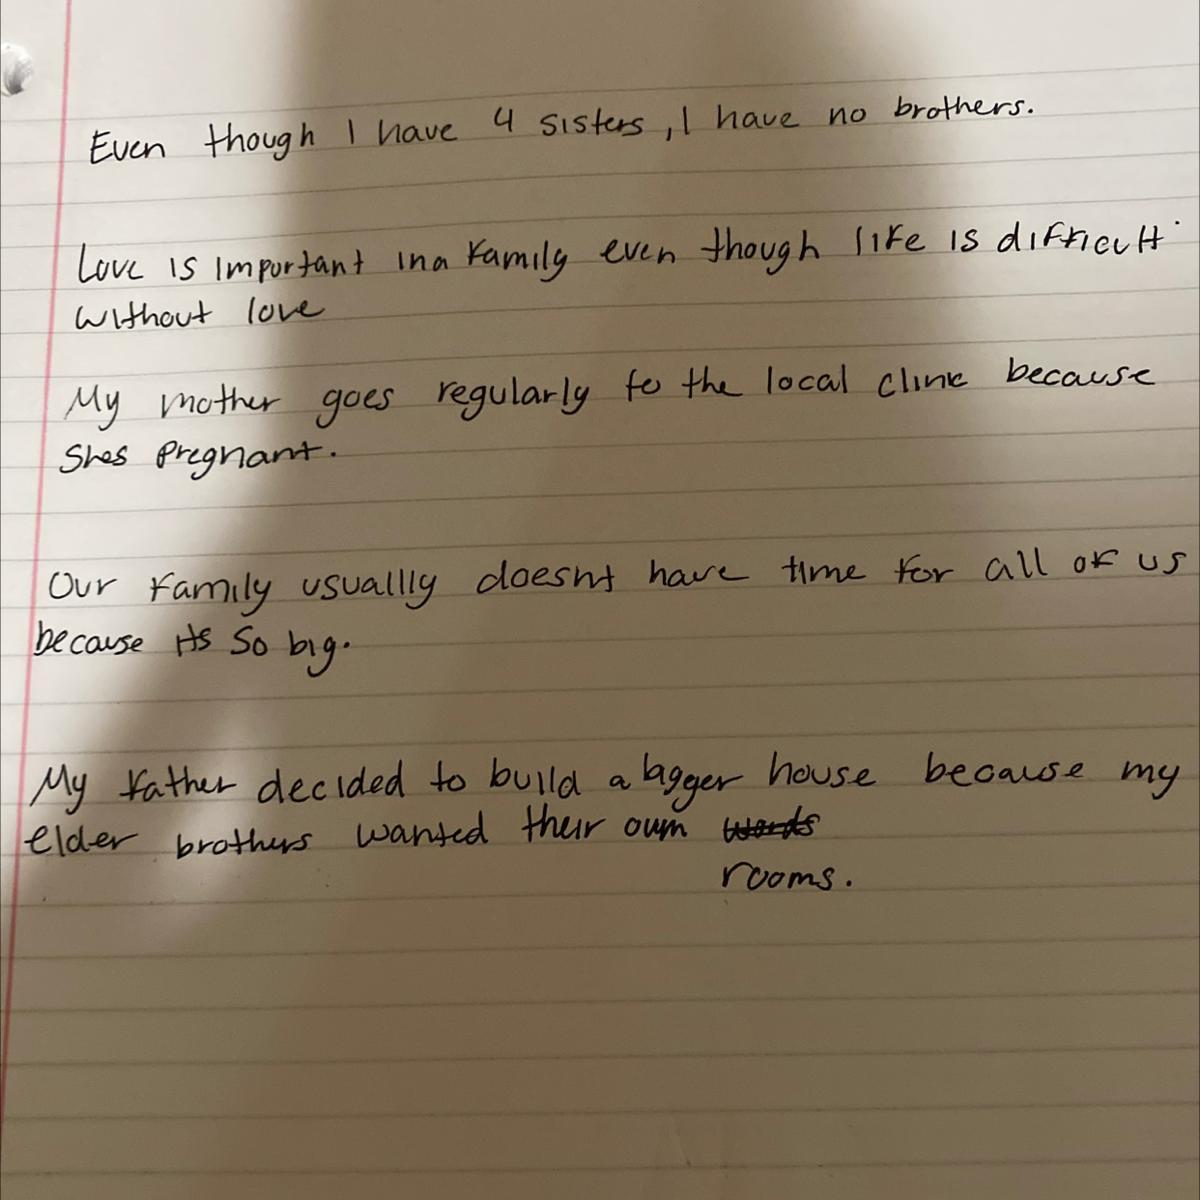 Even though I have 4 sisters, I have no brothers.
Love is important in a family even though life is difficult
without love
My mother goes regularly to the local clinic because
shes pregnant.
Our family usually doesnt have time for all of us
because its so big.
My father decided to build a bigger house because my
elder brothers wanted their own words
rooms.